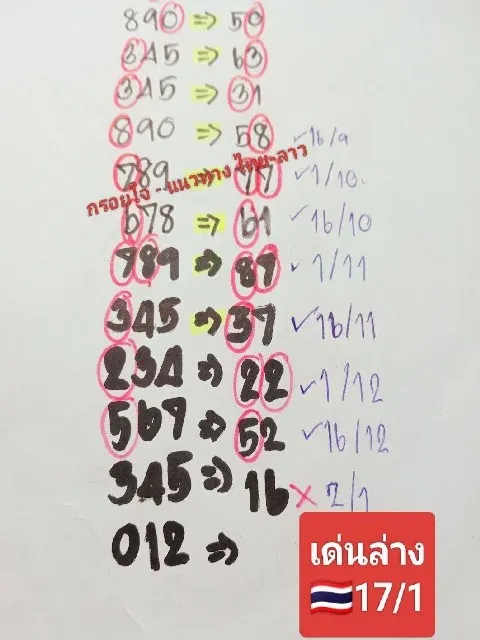 890 => 50
345 => 63
345 => 31
890 => 58 ✓16/9
789 => 77 ✓1/10
กรอยใจ - แนวทาง ไทย-ลาว
678 => 61 ✓16/10
789 => 87 ✓1/11
345 => 37 ✓16/11
234 => 22 ✓1/12
567 => 52 ✓16/12
345 => 16 × 2/1
012 =>
เด่นล่าง
🇹🇭17/1